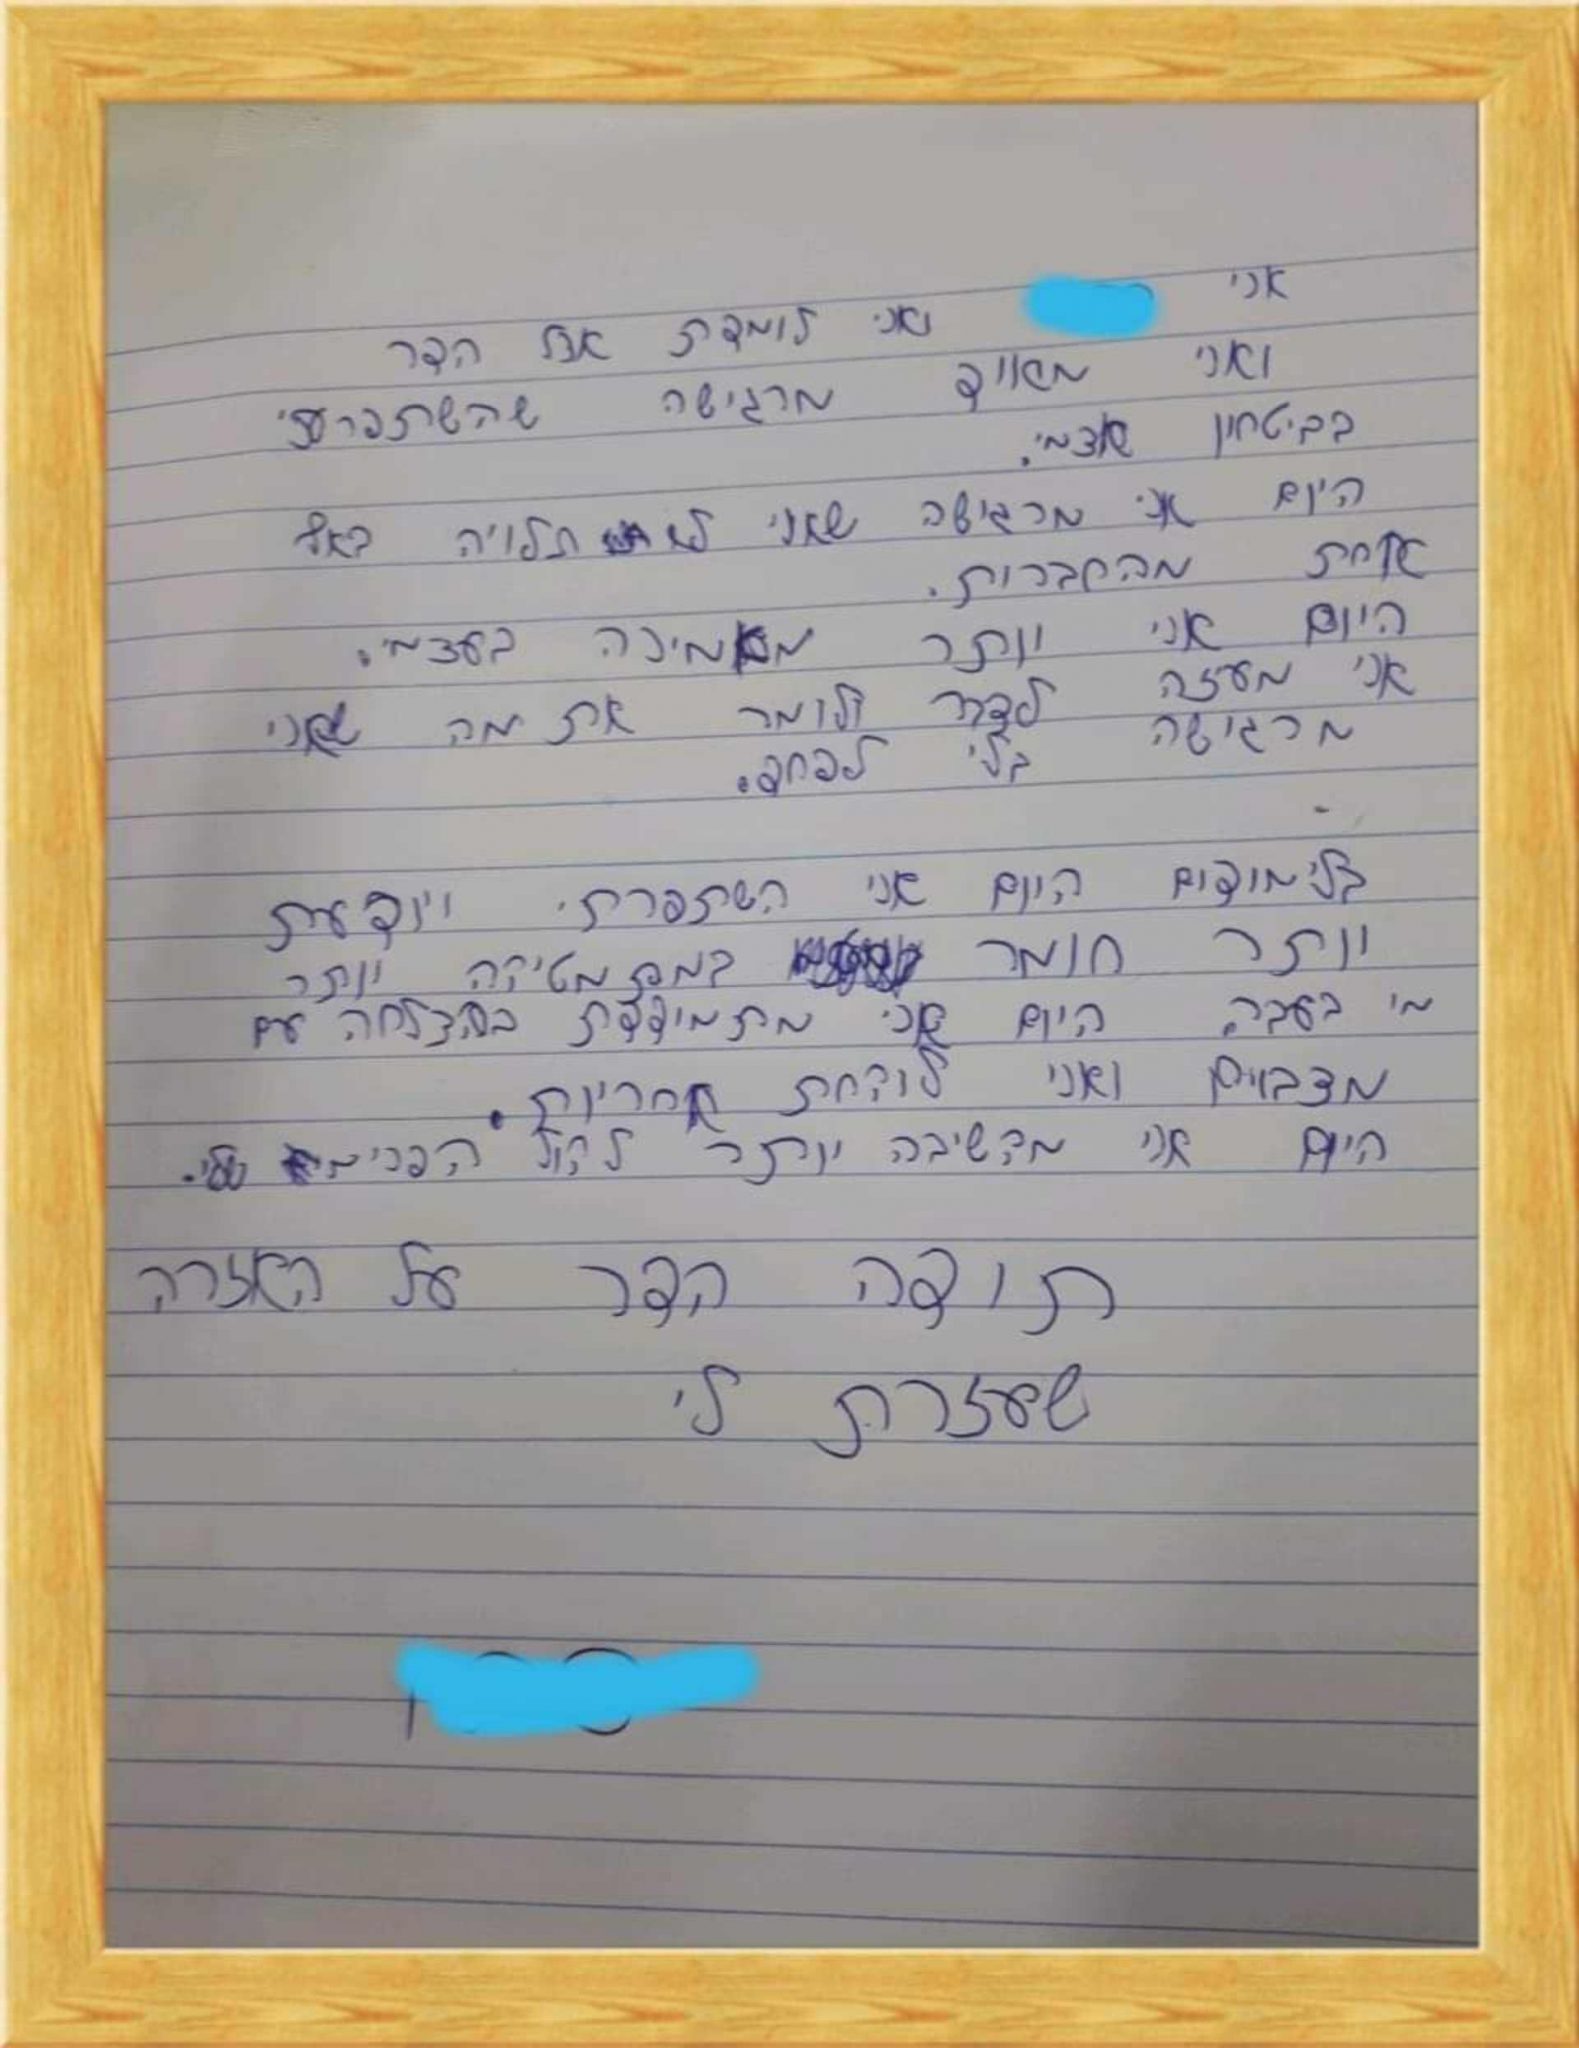 אני
ואני לומדת אצל הדר
ואני מאוד מרגישה שהשתפרתי
בביטחון עצמי.
היום אני מרגישה שאני לא תלויה באף
אחת מהחברות.
היום אני יותר מאמינה בעצמי.
אני מעזה לדבר ולומר את מה שאני
מרגישה בלי לפחד.
בלימודים היום אני השתפרתי ויודעת
יותר חומר במתמטיקה יותר
מי בעבר. היום אני מתמודדת בהצלחה עם
מצבים ואני לוקחת אחריות.
היום אני מקשיבה יותר לקול הפנימי שלי.
תודה הדר על האזרה
שעזרת לי